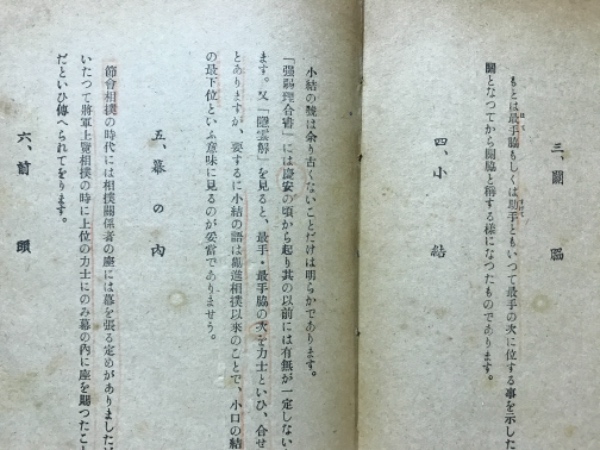 三、關脇
もとは最手脇もしくは助手ともいつて最手の次に位する事を示した
關となつてから關脇と稱する樣になつたものであります。
四、小結
小結の號は余り古くないことだけは明らかであります。
「强弱理合書」には慶安の頃から起り其の以前には有無が一定しない
ます。又「隱雲解」を見ると、最手・最手脇の次を力士といひ、合せ
とありますが、要するに小結の語は勸進相撲以來のことで、小口の結
の最下位といふ意味に見るのが妥當でありませう。
五、幕の內
節會相撲の時代には相撲關係者の座には幕を張る定めがありました
いたつて將軍上覽相撲の時に上位の力士にのみ幕の內に座を賜つたこ
だといひ傳へられてをります。
六、前頭